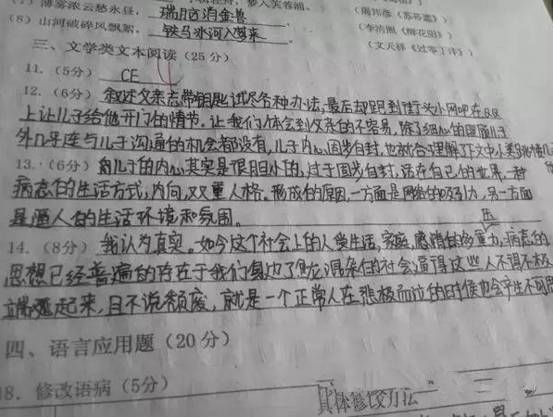 (7) 薄雾浓云愁永昼，瑞脑消金兽
(李清照《醉花阴》)
(8) 山河破碎风飘絮，铁马冰河入梦来
(文天祥《过零丁洋》)
三、文学类文本阅读（25分）
11.（5分） CE
12.（6分）叙述父亲忘带钥匙试尽各种办法，最后却跑到街头小网吧在QQ
上让儿子给他开门的情节。让我们体会到父亲的不容易，除了细心的照顾儿子
外几乎连与儿子沟通的机会都没有，儿子内心固步自封，也就合理解了下文中小
13.（6分）儿子的内心其实是很胆小的，过于固步自封，活在自己的世界，一种
病态的生活方式，内向，双重人格。形成的原因，一方面是网络的吸引力，另一方面
是逼人的生活环境和氛围。
14.（8分）我认为真实。如今这个社会上的人受生活，家庭，感情的多重压力，病态的
思想已经普遍的存在于我们身边了。混杂的社会逼得这些人不得不极
端起来，且不说颓废，就是一个正常人在悲极而泣的时候也会产生不
四、语言应用题（20分）
18. 修改语病（5分）
具体修改方法